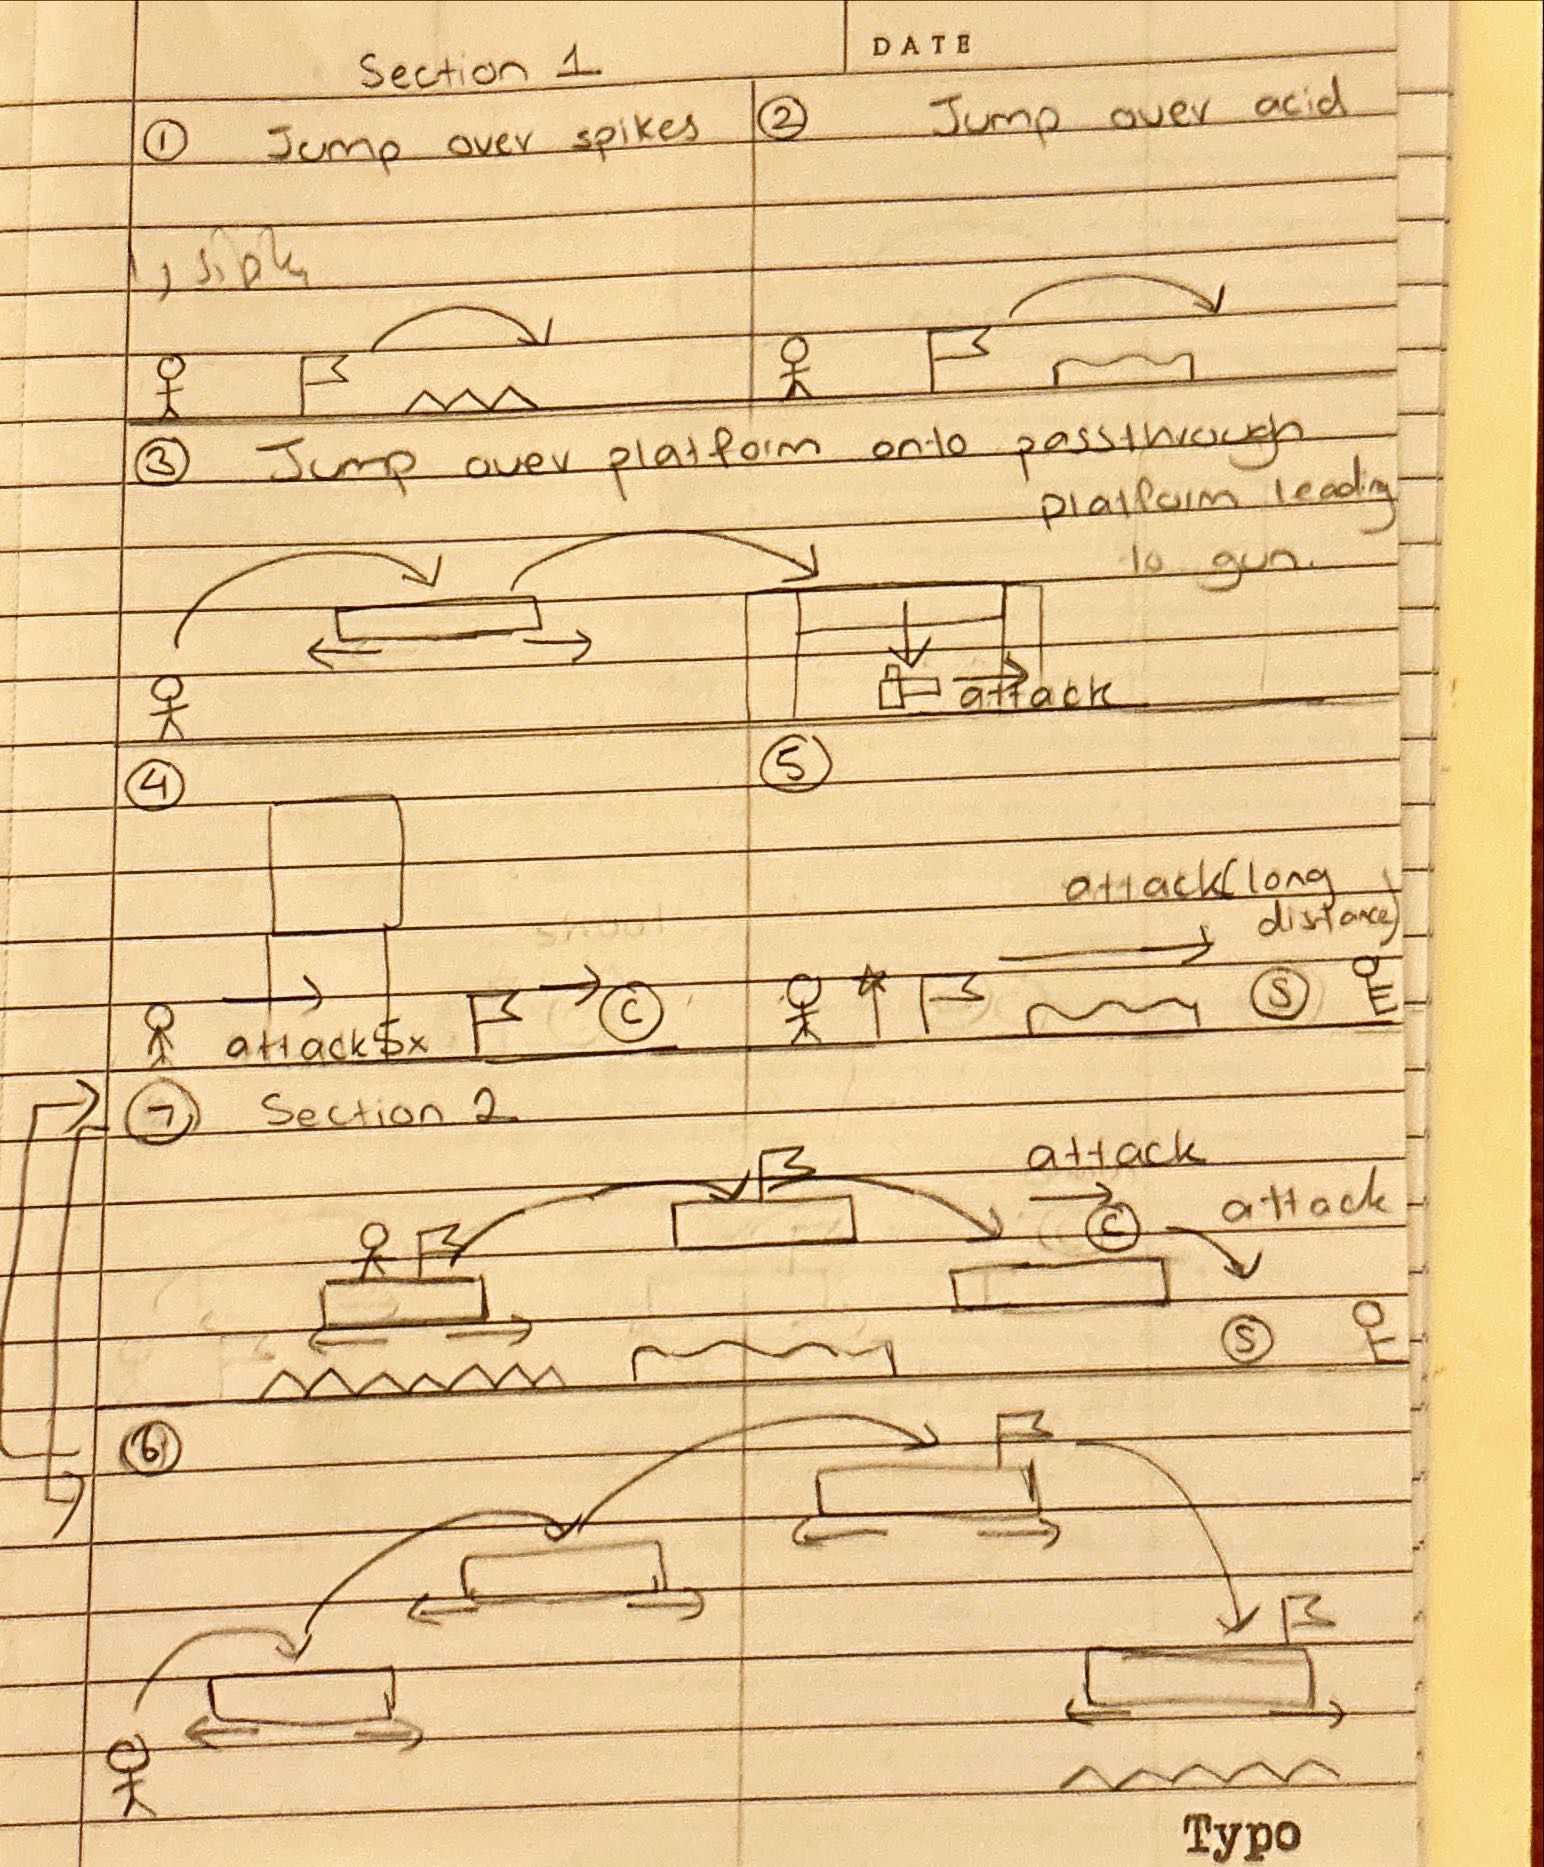 Section 1
DATE
① Jump over spikes
② Jump over acid
③ Jump over platform onto passthrough
platform leading
to gun.
attack
④
⑤
attack(long
distance)
attack5x
C
S
⑦ Section 2
attack
C
attack
S
⑥
Typo